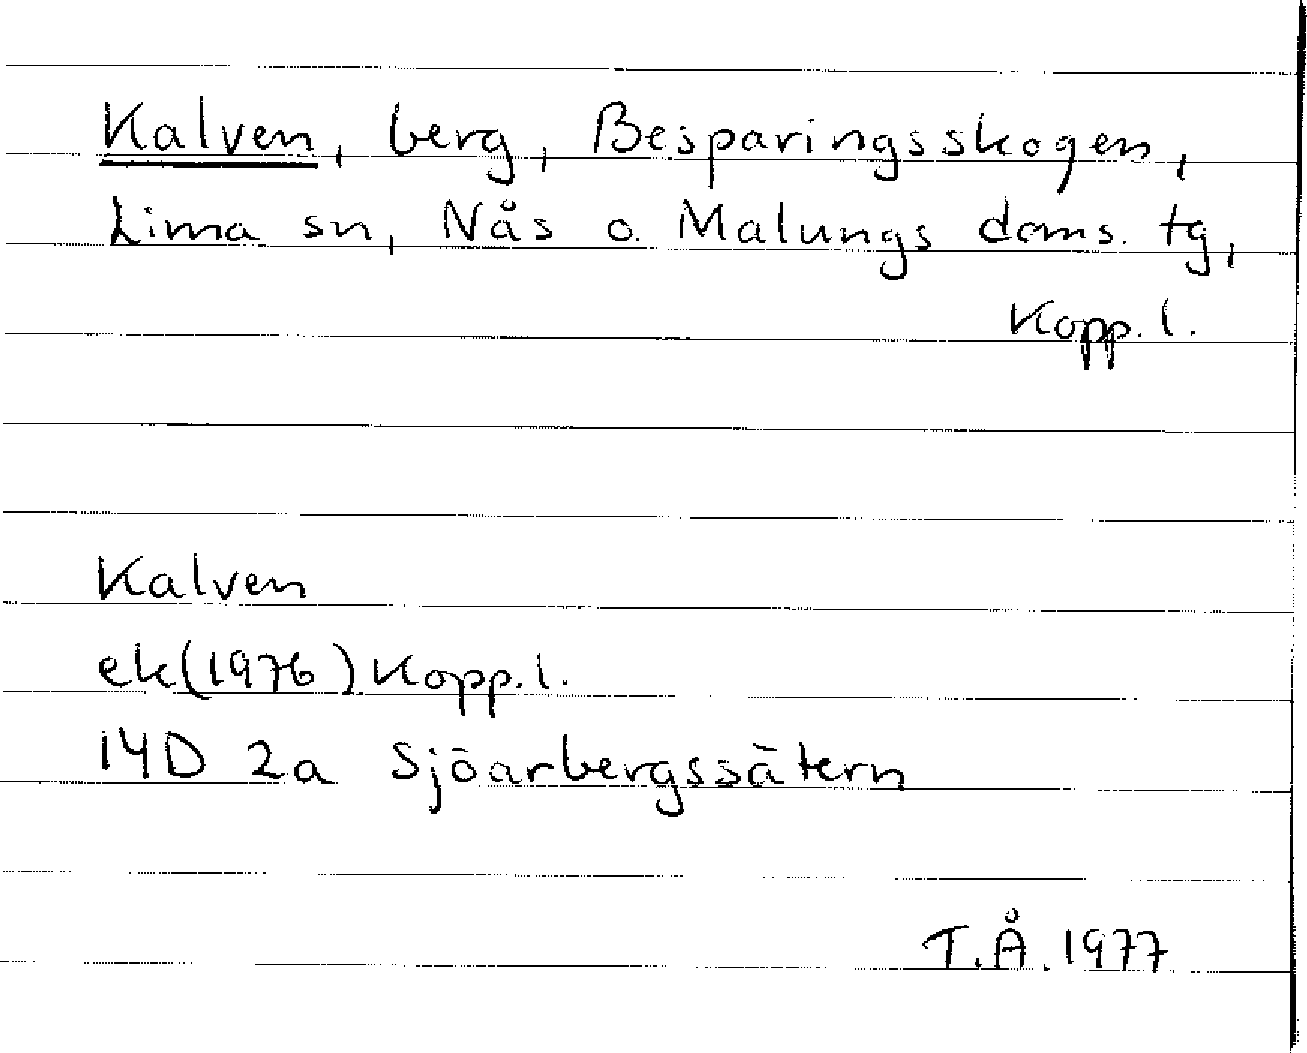 Kalven, berg, Besparingsskogen,
Lima sn, Nås o. Malungs doms. tg,
Kopp. l.
Kalven
ek(1976) Kopp. l.
14D 2a Sjöarbergssätern
T.Å. 1977